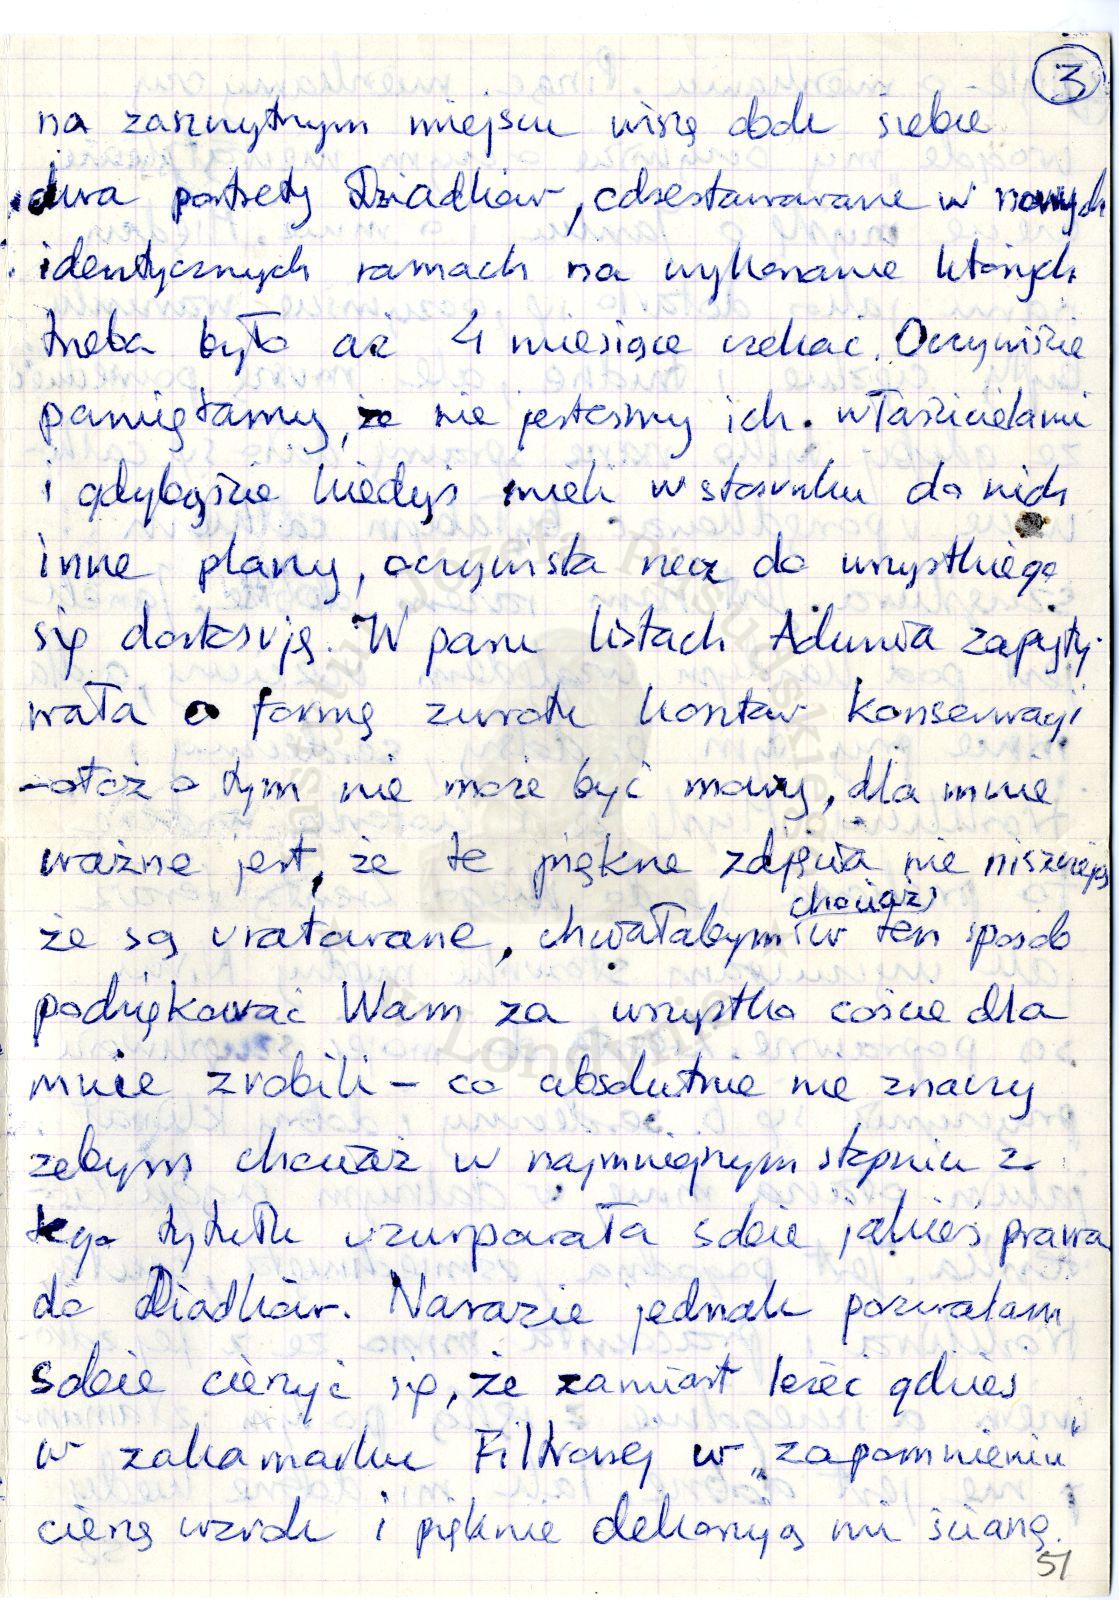 3
na zaszczytnym miejscu wiszą obok siebie
dwa portrety Dziadków, odrestaurowane w nowych
identycznych ramach na wykonanie których
trzeba było aż 4 miesiące czekać. Oczywiście
pamiętamy, że nie jesteśmy ich właścicielami
i gdybyście kiedyś mieli w stosunku do nich
inne plany, oczywista rzecz do wszystkiego
się dostosuję. W paru listach Adunia zapyty-
wała o formę zwrotu kosztów konserwacji
- otóż o tym nie może być mowy, dla mnie
ważne jest, że te piękne zdjęcia nie niszczeją
że są uratowane, chciałabym chociaż w ten sposób
podziękować Wam za wszystko coście dla
mnie zrobili - co absolutnie nie znaczy
żebym chociaż w najmniejszym stopniu z
tego tytułu uzurpowała sobie jakieś prawa
do Dziadków. Narazie jednak pozwalam
sobie cieszyć się, że zamiast leżeć gdzieś
w zakamarku Filtrowej w „zapomnieniu"
cieszą wzrok i pięknie dekorują mi ścianę.
51
Londynie